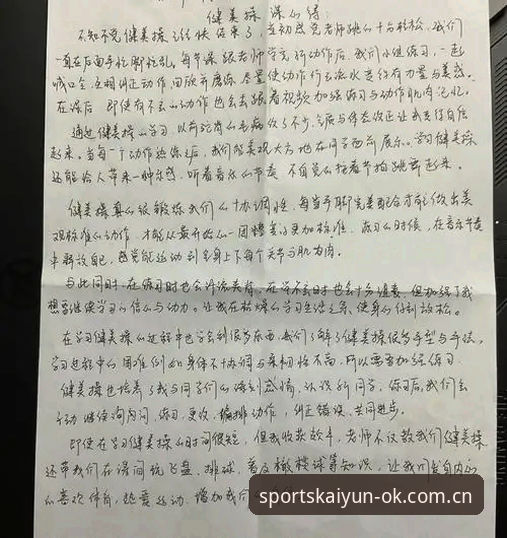 健美操 课心得
不知不觉健美操课快结束了，当初感觉老师跳的十分轻松，我们
一直在后面手忙脚忙乱。每节课跟老师学完新动作后，我们小组练习，一起
喊口令，互相纠正动作，回放并磨练，尽量使动作行云流水并没有力量与美感。
在课后 即使有不会的动作也会去跟着视频加强练习与动作肌肉记忆。
通过健美操的学习，以前沱背的毛病改了不少，气质与体态改正让我变得自信
起来。当每一个动作熟练之后，我们能美观大方地在同学面前展示。学习健美操
还能给人带来一种乐感，听着音乐的节奏 不自觉的拖着节拍跳舞起来。
健美操真的很锻炼我们的协调性，每当手脚完美配合才能做出美
观标准的动作 才能从最开始的一团糟变得更加标准。练习的时候，在音乐节奏
中释放自己，感觉能运动到全身上下每个关节与肌肉。
与此同时，在练习时也会
想要继续学习的信心与动力。让我在枯燥的学习生活之余，使身心得到放松。
在学习健美操的过程中也学会到很多东西，我们了解了健美操很多手型与手法，
学习过程中的困难例如身体不协调与柔韧性不高，所以需要加强练习。
健美操也培养了我与同学们的深刻感情，认识新同学，练习后，我们会
主动继续询问，练习，更改，编排动作，纠正错误，共同进步。
即使在学习健美操的时间很短，但我收获颇丰，老师不仅教我们健美操
还带我们在课间玩飞盘，排球，普及橄榄球等知识，让我们发自内心
的喜欢体育，热爱运动，增加我们
sportskaiyun-ok.com.cn